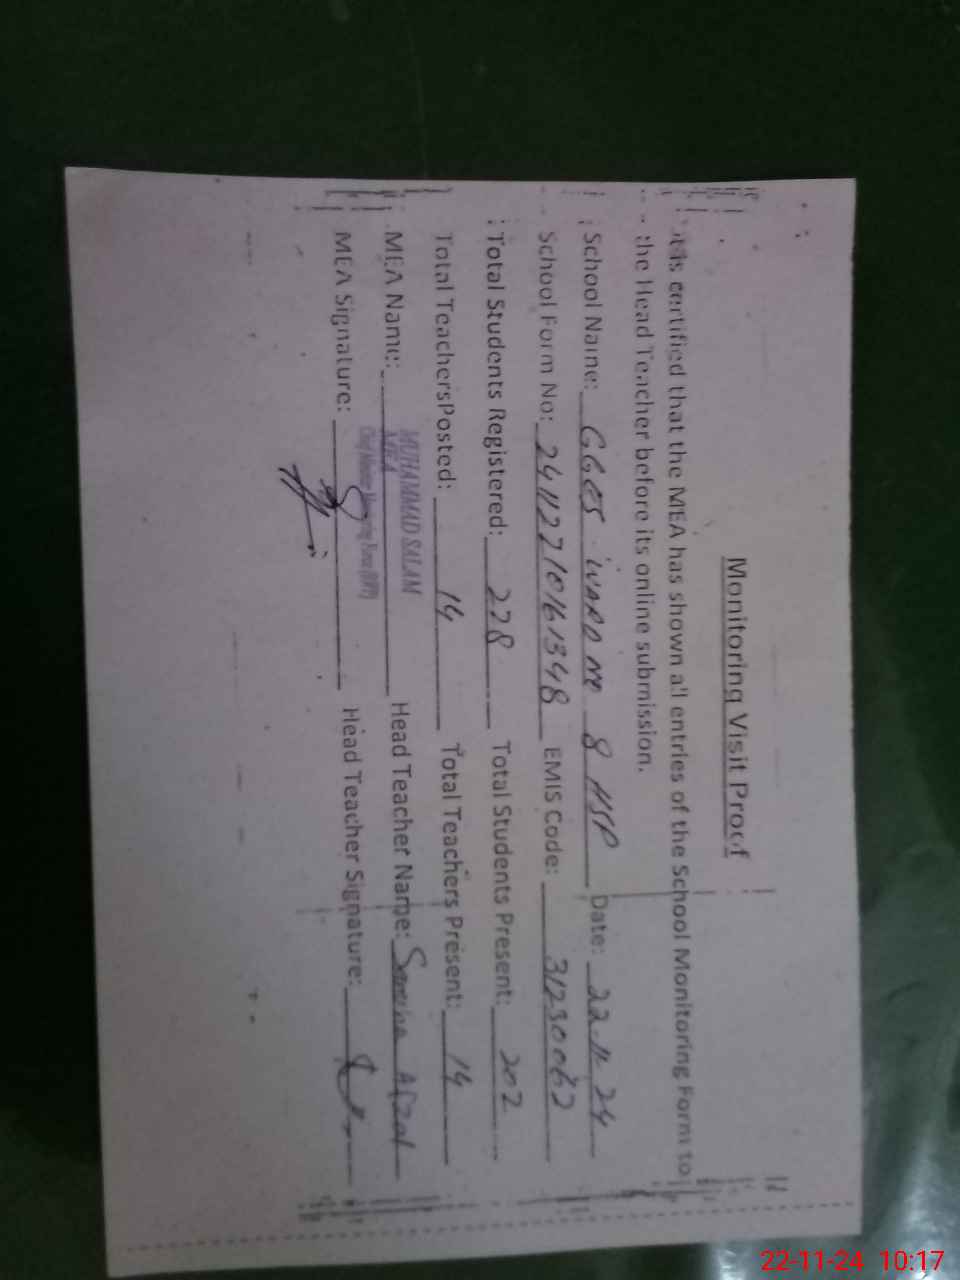 Monitoring Visit Proof
It is certified that the MEA has shown all entries of the School Monitoring Form to
the Head Teacher before its online submission.
School Name: GGES WARD NO 8 HSP Date: 22.11.24
School Form No: 24112710161348 EMIS Code: 31230062
Total Students Registered: 228 Total Students Present: 202
Total TeachersPosted: 14 Total Teachers Present: 14
MEA Name: MUHAMMAD SALAM Head Teacher Name: Samina Afzal
MEA
MEA Signature: Head Teacher Signature:
22-11-24 10:17